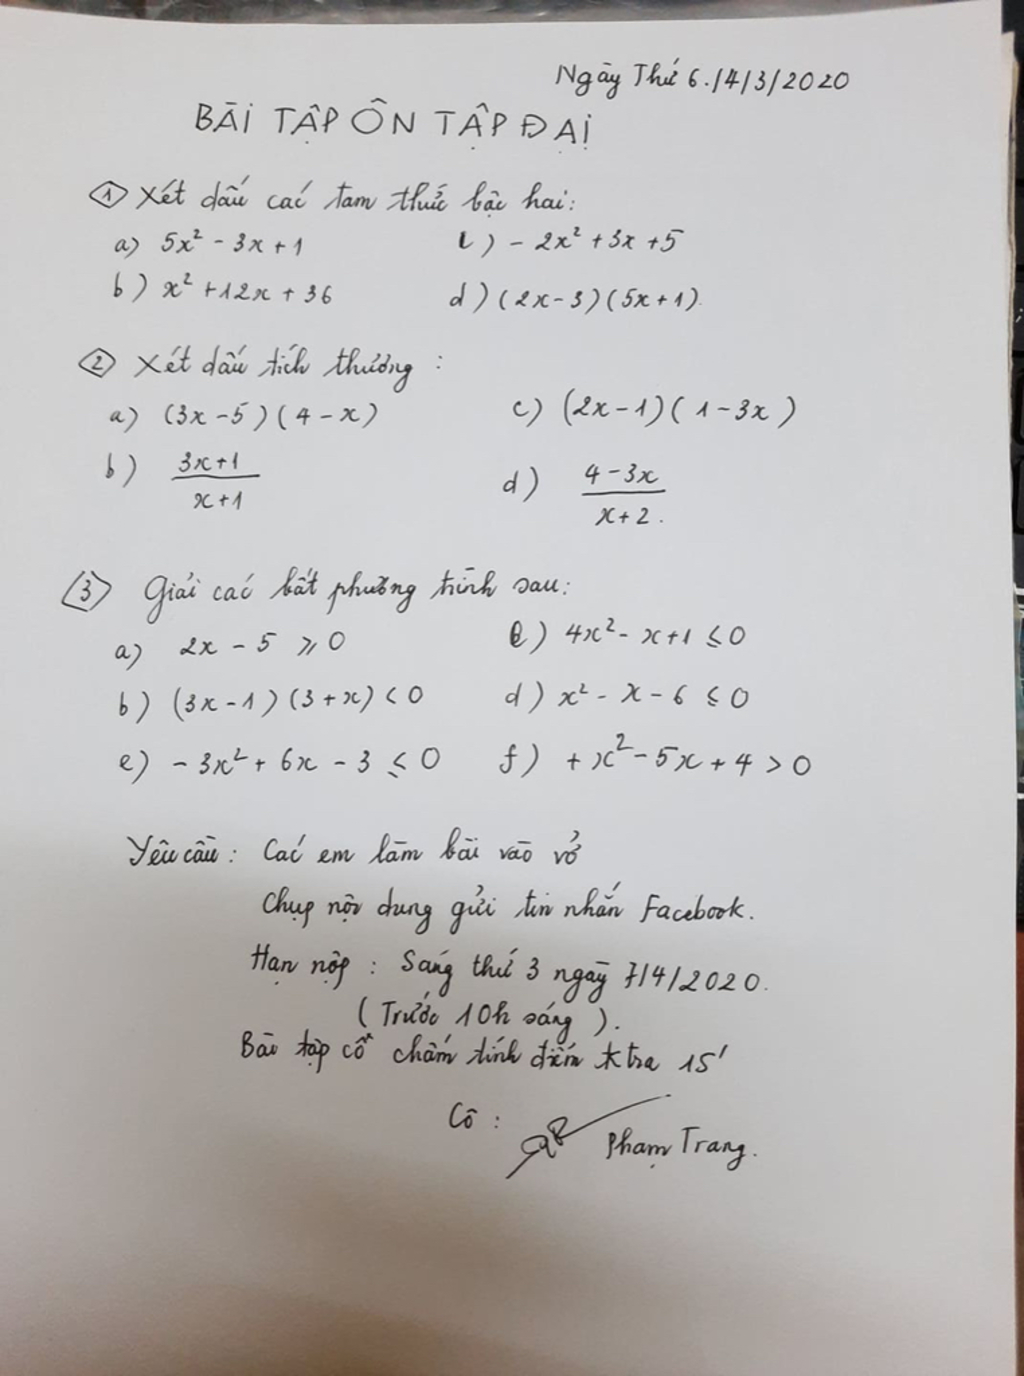 Ngày Thứ 6./4/3/2020
BÀI TẬP ÔN TẬP ĐẠI
1 Xét dấu các tam thức bậc hai:
a) 5x² - 3x + 1
c) - 2x² + 3x + 5
b) x² + 12x + 36
d) (2x - 3)(5x + 1).
2 Xét dấu tích thương:
a) (3x - 5)(4 - x)
c) (2x - 1)(1 - 3x)
b) (3x + 1)/(x + 1)
d) (4 - 3x)/(x + 2).
3 Giải các bất phương trình sau:
a) 2x - 5 ⩾ 0
c) 4x² - x + 1 ≤ 0
b) (3x - 1)(3 + x) < 0
d) x² - x - 6 ≤ 0
e) - 3x² + 6x - 3 ≤ 0
f) + x² - 5x + 4 > 0
Yêu cầu: Các em làm bài vào vở
Chụp nội dung gửi tin nhắn Facebook.
Hạn nộp: Sáng thứ 3 ngày 7/4/2020.
(Trước 10h sáng).
Bài tập cô chấm tính điểm ktra 15'
Cô:
Phạm Trang.